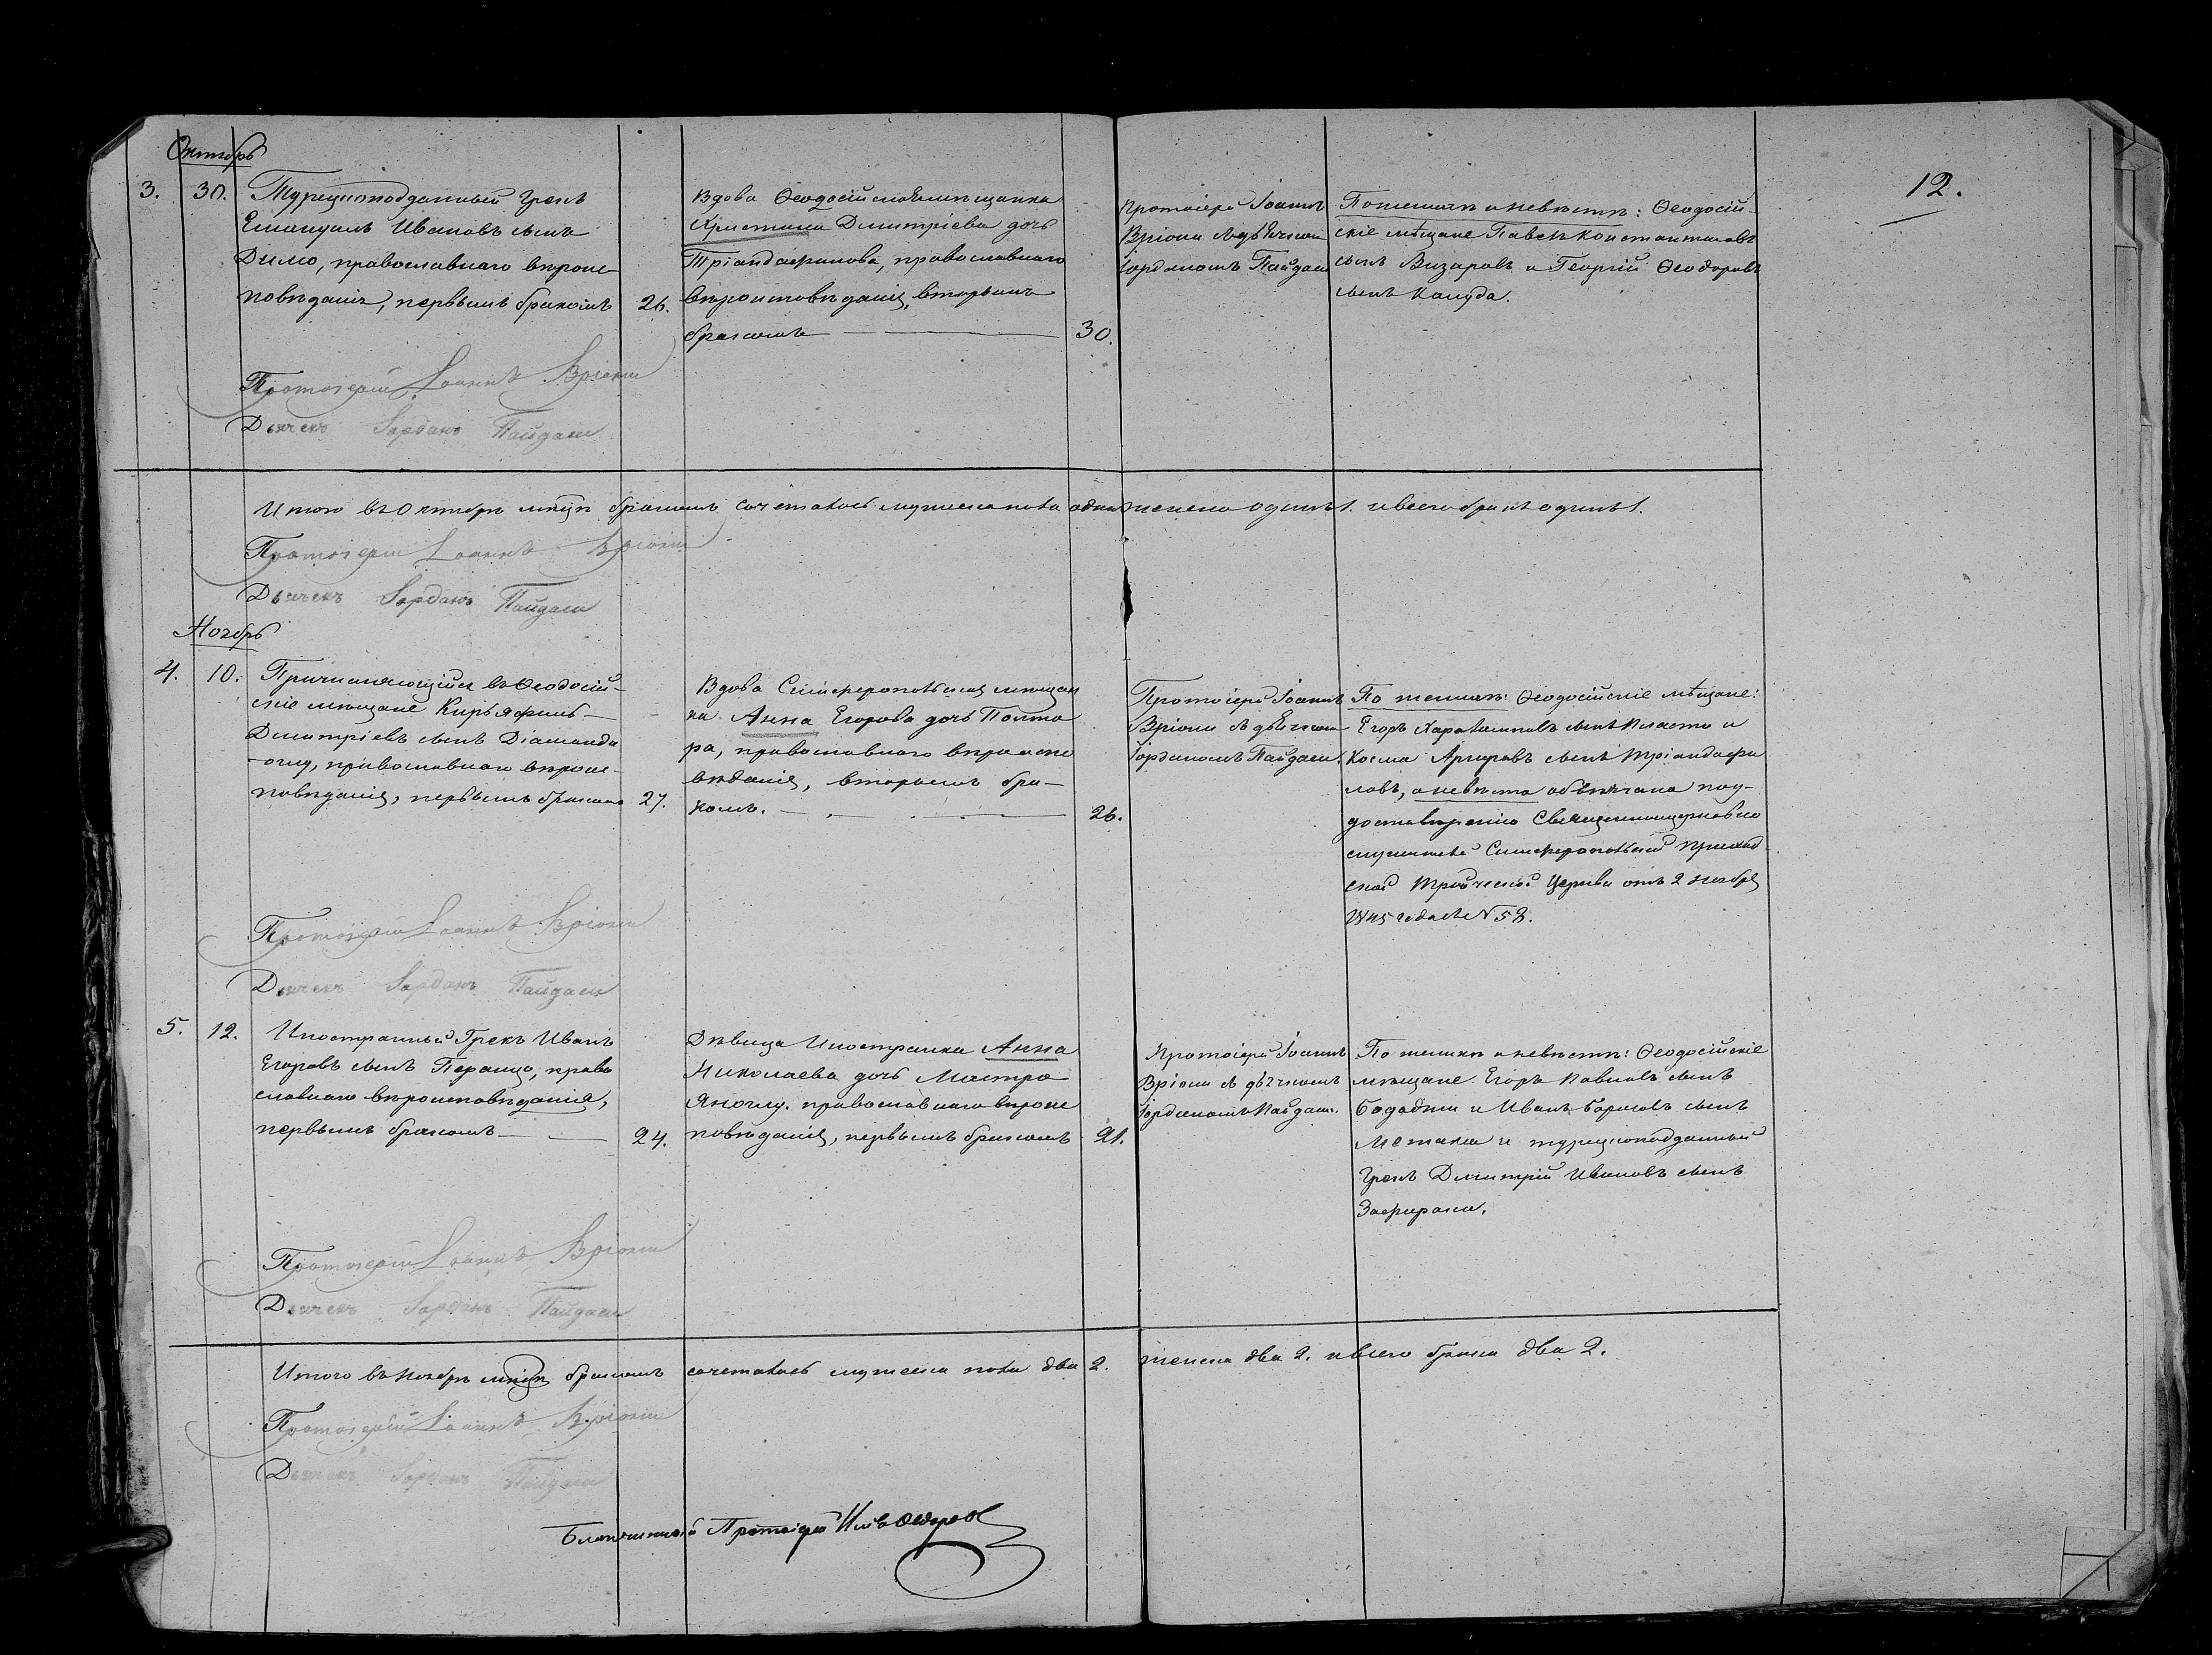 12.
Октябрь
3. 30. Турецкоподданный Грекъ
Емануилъ Ивановъ сынъ
Димо, православнаго вѣроис-
повѣданія, первымъ бракомъ 26.
Вдова Ѳеодосійская мѣщанка
Христина Димитріева дочь
Тріандафилова, православнаго
вѣроисповѣданія, вторымъ
бракомъ — 30.
Протоіерей Іоаннъ
Вріони съ дьячкомъ
Іорданомъ Пайдаси
По женихѣ и невѣстѣ: Ѳеодосій-
скіе мѣщане Павелъ Константиновъ
сынъ Визировъ и Георгій Ѳеодоровъ
сынъ Калуда.
Протоіерей Іоаннъ Вріони
Дьячекъ Іорданъ Пайдаси
Итого въ Октябрѣ мѣцѣ бракомъ сочеталось мужеска пола одинъ женска одинъ 1. и всего бракъ одинъ 1.
Протоіерей Іоаннъ Вріони
Дьячекъ Іорданъ Пайдаси
Ноябрь
4. 10. Причисляющійся въ Ѳеодосій-
скіе мѣщане Кирьяфилъ
Дмитріевъ сынъ Діаманди
-оглу, православнаго вѣроис-
повѣданія, первымъ бракомъ 27.
Вдова Симферопольская мѣщан
ка Анна Егорова дочь Полто
ра, православнаго вѣроиспо
вѣданія, вторымъ бра-
комъ. — 26.
Протоіерей Іоаннъ
Вріони съ дьячкомъ
Іорданомъ Пайдаси.
По женихѣ: Ѳеодосійскіе мѣщане:
Егоръ Харалампіевъ сынъ Власто и
Косма Аргировъ сынъ Тріандафи
ловъ, а невѣста обвѣнчана по у-
достовѣренію Священноцерковно
служителей Симферопольской приход
ской Троицкой Церкви отъ 2 ноября
1845 года за № 58.
Протоіерей Іоаннъ Вріони
Дьячекъ Іорданъ Пайдаси
5. 12. Иностранный Грекъ Иванъ
Егоровъ сынъ Перанцо, право
славнаго вѣроисповѣданія,
первымъ бракомъ — 24.
Дѣвица Иностранка Анна
Николаева дочь Мастро
Яноглу. православнаго вѣроис
повѣданія, первымъ бракомъ 21.
Протоіерей Іоаннъ
Вріони съ дьячкомъ
Іорданомъ Пайдаси.
По женихѣ и невѣстѣ: Ѳеодосійскіе
мѣщане Егоръ Павловъ сынъ
и Иванъ Борисовъ сынъ
Метакса и турецкоподданный
Грекъ Димитрій Ивановъ сынъ
Зафираки.
Протоіерей Іоаннъ Вріони
Дьячекъ Іорданъ Пайдаси
Итого въ Ноябрѣ мѣцѣ бракомъ сочеталось мужеска пола два 2. женска два 2. и всего брака два 2.
Протоіерей Іоаннъ Вріони
Дьячекъ Іорданъ Пайдаси
Благочинный Протоіерей